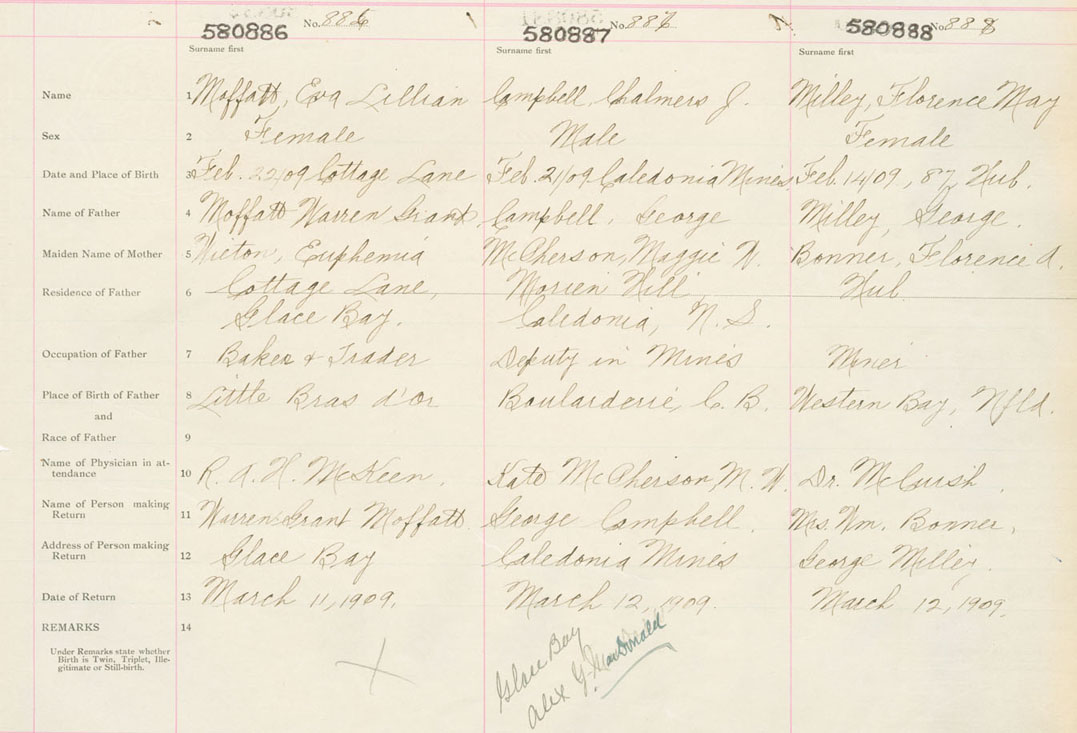 No. 886 No. 887 No. 888
580886 580887 580888
Surname first Surname first Surname first
Name 1 Moffatt, Eva Lillian Campbell, Chalmers J. Milley, Florence May
Sex 2 Female Male Female
Date and Place of Birth 3 Feb. 22/09 Cottage Lane Feb. 21/09 Caledonia Mines Feb. 14/09, 87, Hub.
Name of Father 4 Moffatt Warren Grant Campbell, George Milley, George.
Maiden Name of Mother 5 Euphemia McPherson, Maggie W. Bonner, Florence A.
Residence of Father 6 Cottage Lane, Morien Hill Hub.
Glace Bay. Caledonia, N. S.
Occupation of Father 7 Baker & Trader Deputy in Mines Miner
Place of Birth of Father 8 Little Bras d'or Boularderie, C. B. Western Bay, Nfld.
and
Race of Father 9
Name of Physician in at-
tendance 10 R. A. H. McKeen. Kate McPherson, M. W. Dr. McCuish.
Name of Person making
Return 11 Warren Grant Moffatt George Campbell. Mrs. Wm. Bonner,
Address of Person making
Return 12 Glace Bay Caledonia Mines George Milley.
Date of Return 13 March 11, 1909. March 12, 1909. March 12, 1909.
REMARKS 14
Under Remarks state whether
Birth is Twin, Triplet, Ille-
gitimate or Still-birth.
X
Glace Bay
Alex G. MacDonald